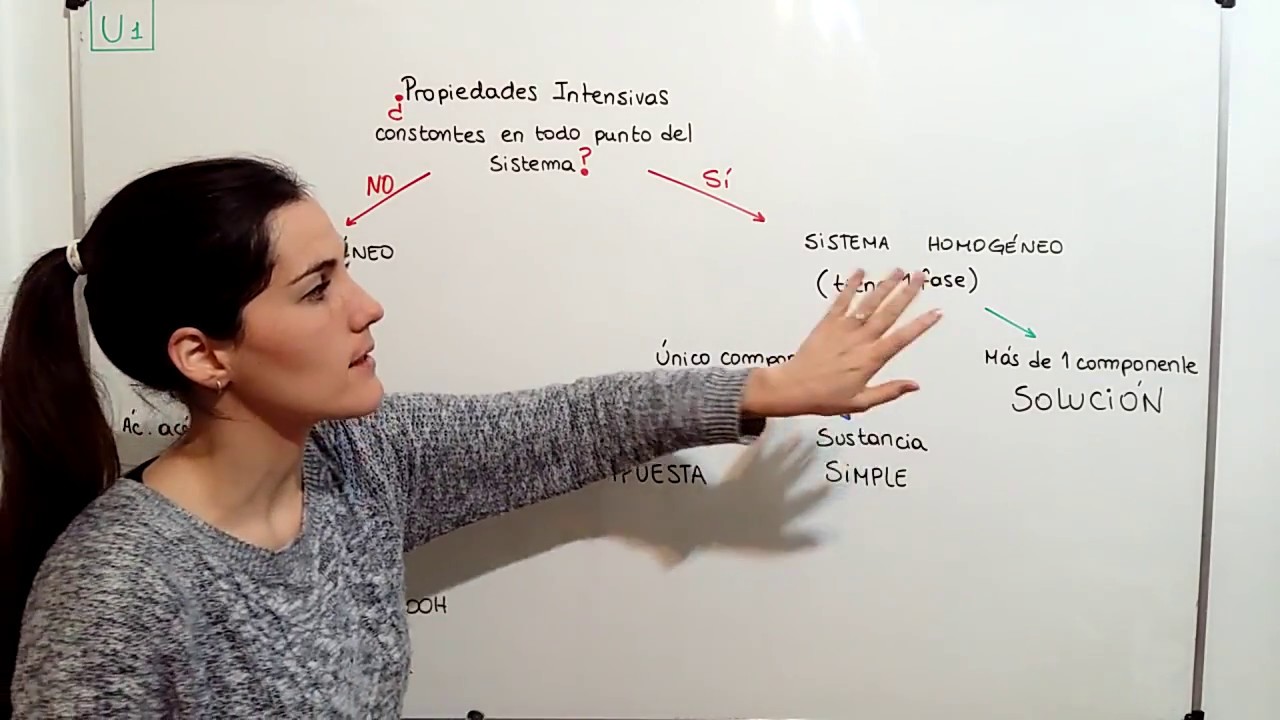 U1
¿Propiedades Intensivas
constantes en todo punto del
Sistema?
NO
Sí
SISTEMA HOMOGÉNEO
fase)
Único
Más de 1 componente
SOLUCIÓN
Ác.
Sustancia
SIMPLE